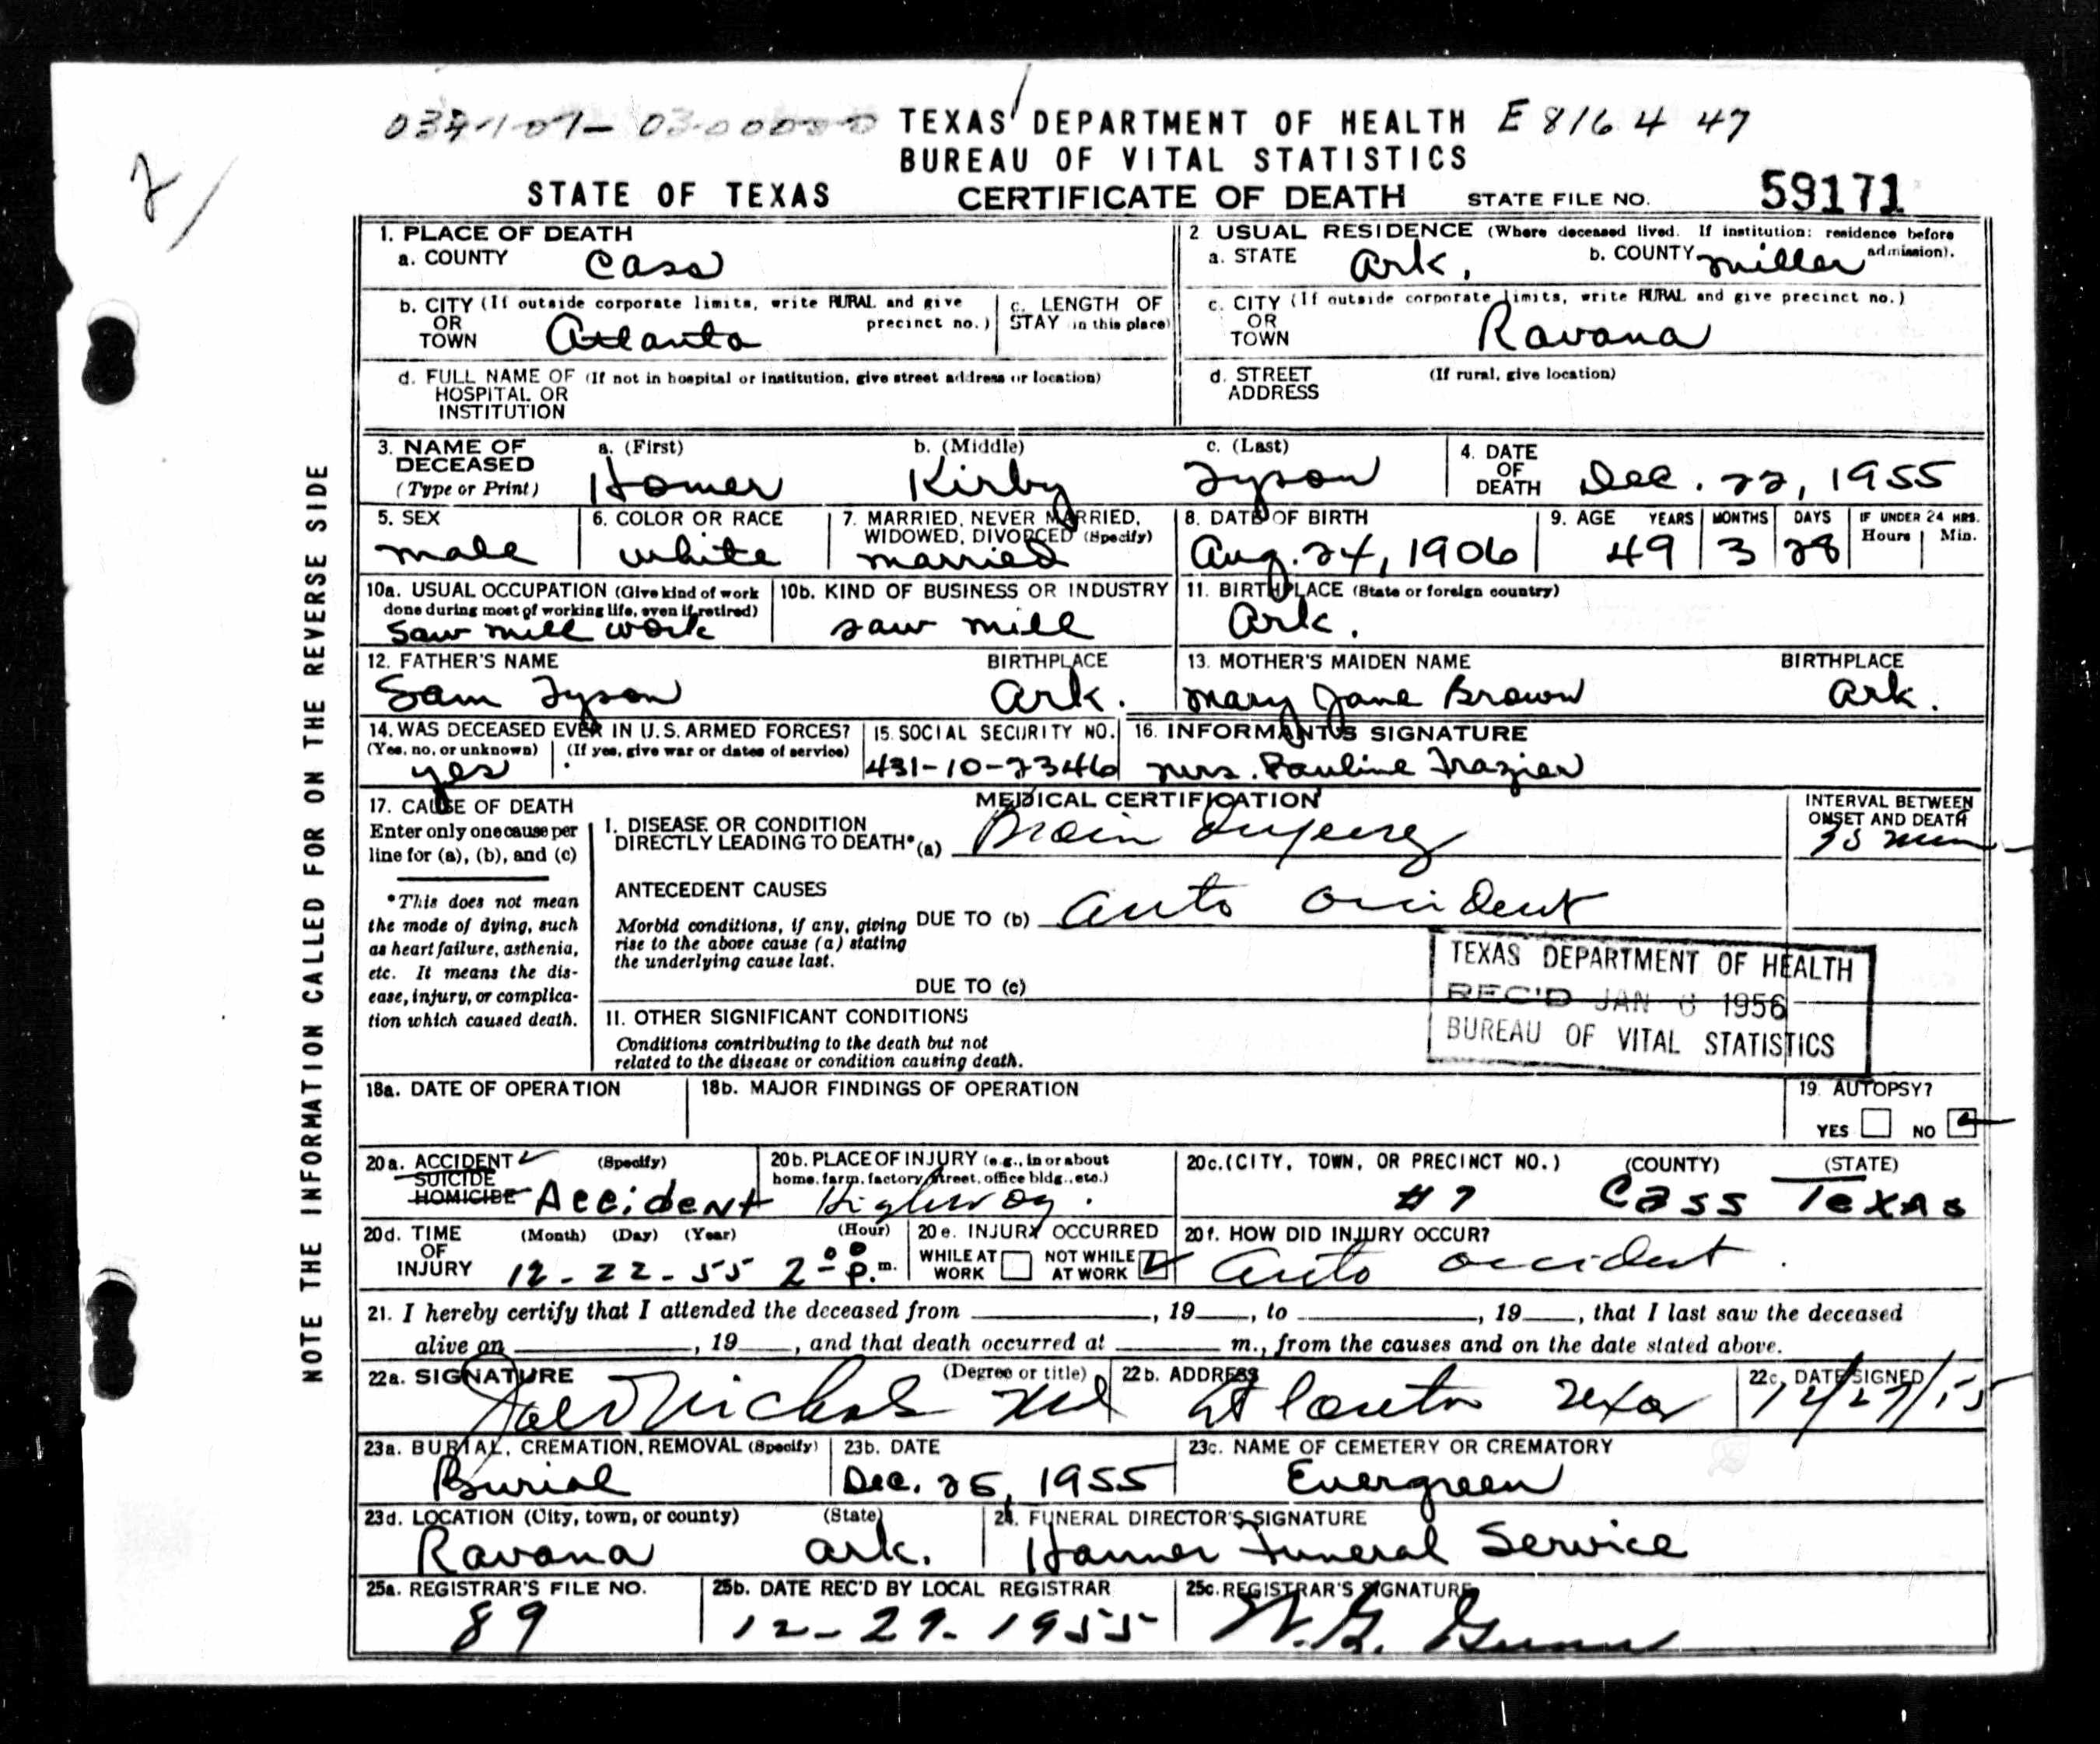 034-107- 03-00000 TEXAS DEPARTMENT OF HEALTH E 816 4 47
BUREAU OF VITAL STATISTICS
STATE OF TEXAS CERTIFICATE OF DEATH STATE FILE NO. 59171
2/
NOTE THE INFORMATION CALLED FOR ON THE REVERSE SIDE
1. PLACE OF DEATH
a. COUNTY Cass
2 USUAL RESIDENCE (Where deceased lived. If institution: residence before admission).
a. STATE Ark. b. COUNTY Miller
b. CITY (If outside corporate limits, write RURAL and give precinct no.)
OR TOWN Atlanta
c. LENGTH OF STAY (in this place)
c. CITY (If outside corporate limits, write RURAL and give precinct no.)
OR TOWN Ravana
d. FULL NAME OF (If not in hospital or institution, give street address or location)
HOSPITAL OR INSTITUTION
d. STREET ADDRESS (If rural, give location)
3. NAME OF DECEASED (Type or Print) a. (First) Homer b. (Middle) Kirby c. (Last) Tyson
4. DATE OF DEATH Dec. 22, 1955
5. SEX male
6. COLOR OR RACE white
7. MARRIED, NEVER MARRIED, WIDOWED, DIVORCED (Specify) married
8. DATE OF BIRTH Aug. 24, 1906
9. AGE YEARS 49 MONTHS 3 DAYS 28 IF UNDER 24 HRS. Hours Min.
10a. USUAL OCCUPATION (Give kind of work done during most of working life, even if retired) Saw mill work
10b. KIND OF BUSINESS OR INDUSTRY saw mill
11. BIRTHPLACE (State or foreign country) Ark.
12. FATHER'S NAME Sam Tyson BIRTHPLACE Ark.
13. MOTHER'S MAIDEN NAME Mary Jane Brown BIRTHPLACE Ark.
14. WAS DECEASED EVER IN U.S. ARMED FORCES?
(Yes, no, or unknown) yes (If yes, give war or dates of service)
15. SOCIAL SECURITY NO. 431-10-2346
16. INFORMANT'S SIGNATURE Mrs. Pauline Frazier
17. CAUSE OF DEATH
Enter only one cause per line for (a), (b), and (c)
*This does not mean the mode of dying, such as heart failure, asthenia, etc. It means the disease, injury, or complication which caused death.
MEDICAL CERTIFICATION
INTERVAL BETWEEN ONSET AND DEATH
I. DISEASE OR CONDITION DIRECTLY LEADING TO DEATH* (a) Brain Injury min
ANTECEDENT CAUSES
Morbid conditions, if any, giving rise to the above cause (a) stating the underlying cause last.
DUE TO (b) Auto accident
DUE TO (c)
TEXAS DEPARTMENT OF HEALTH
REC'D JAN 6 1956
BUREAU OF VITAL STATISTICS
II. OTHER SIGNIFICANT CONDITIONS
Conditions contributing to the death but not related to the disease or condition causing death.
18a. DATE OF OPERATION
18b. MAJOR FINDINGS OF OPERATION
19. AUTOPSY?
YES NO
20a. ACCIDENT SUICIDE HOMICIDE (Specify) Accident
20b. PLACE OF INJURY (e.g., in or about home, farm, factory, street, office bldg., etc.) Highway.
20c. (CITY, TOWN, OR PRECINCT NO.) #7 (COUNTY) Cass (STATE) Texas
20d. TIME OF INJURY (Month) (Day) (Year) (Hour) 12-22-55 2:00 P.m.
20e. INJURY OCCURRED
WHILE AT WORK NOT WHILE AT WORK
20f. HOW DID INJURY OCCUR? Auto accident.
21. I hereby certify that I attended the deceased from , 19 , to , 19 , that I last saw the deceased
alive on , 19 , and that death occurred at m., from the causes and on the date stated above.
22a. SIGNATURE (Degree or title) Joe D Nichols MD
22b. ADDRESS Atlanta Texas
22c. DATE SIGNED 12/27/55
23a. BURIAL, CREMATION, REMOVAL (Specify) Burial
23b. DATE Dec. 25, 1955
23c. NAME OF CEMETERY OR CREMATORY Evergreen
23d. LOCATION (City, town, or county) Ravana (State) Ark.
24. FUNERAL DIRECTOR'S SIGNATURE Hanner Funeral Service
25a. REGISTRAR'S FILE NO. 89
25b. DATE REC'D BY LOCAL REGISTRAR 12-29-1955
25c. REGISTRAR'S SIGNATURE W.G. Gunn